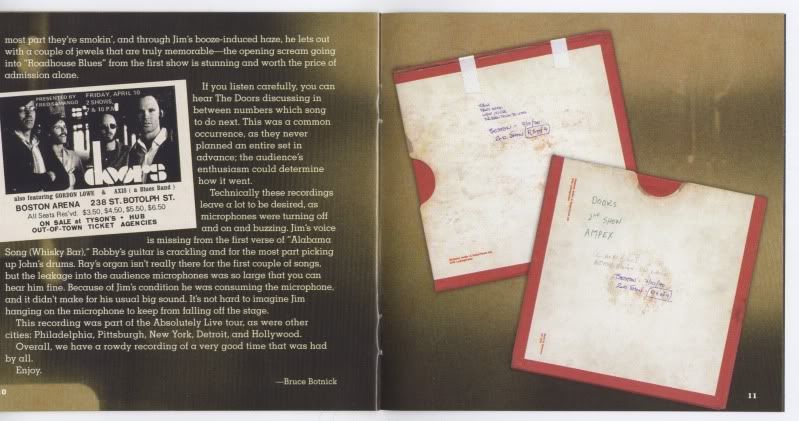 most part they're smokin', and through Jim's booze-induced haze, he lets out
with a couple of jewels that are truly memorable—the opening scream going
into "Roadhouse Blues" from the first show is stunning and worth the price of
admission alone.
PRESENTED BY
FRIDAY, APRIL 10
2 SHOWS,
7 & 10 P.M.
doors
also featuring GORDON LOWE & AXIS ( a Blues Band )
BOSTON ARENA 238 ST. BOTOLPH ST.
All Seats Res'vd. $3.50, $4.50, $5.50, $6.50
ON SALE at TYSON'S • HUB
OUT-OF-TOWN TICKET AGENCIES
If you listen carefully, you can
hear The Doors discussing in
between numbers which song
to do next. This was a common
occurrence, as they never
planned an entire set in
advance; the audience's
enthusiasm could determine
how it went.
Technically these recordings
leave a lot to be desired, as
microphones were turning off
and on and buzzing. Jim's voice
is missing from the first verse of "Alabama
Song (Whisky Bar)," Robby's guitar is crackling and for the most part picking
up John's drums. Ray's organ isn't really there for the first couple of songs,
but the leakage into the audience microphones was so large that you can
hear him fine. Because of Jim's condition he was consuming the microphone,
and it didn't make for his usual big sound. It's not hard to imagine Jim
hanging on the microphone to keep from falling off the stage.
This recording was part of the Absolutely Live tour, as were other
cities: Philadelphia, Pittsburgh, New York, Detroit, and Hollywood.
Overall, we have a rowdy recording of a very good time that was had
by all.
Enjoy.
—Bruce Botnick
0
BOSTON
2nd SHOW
DOORS
2nd SHOW
AMPEX
BOSTON
2nd SHOW
11